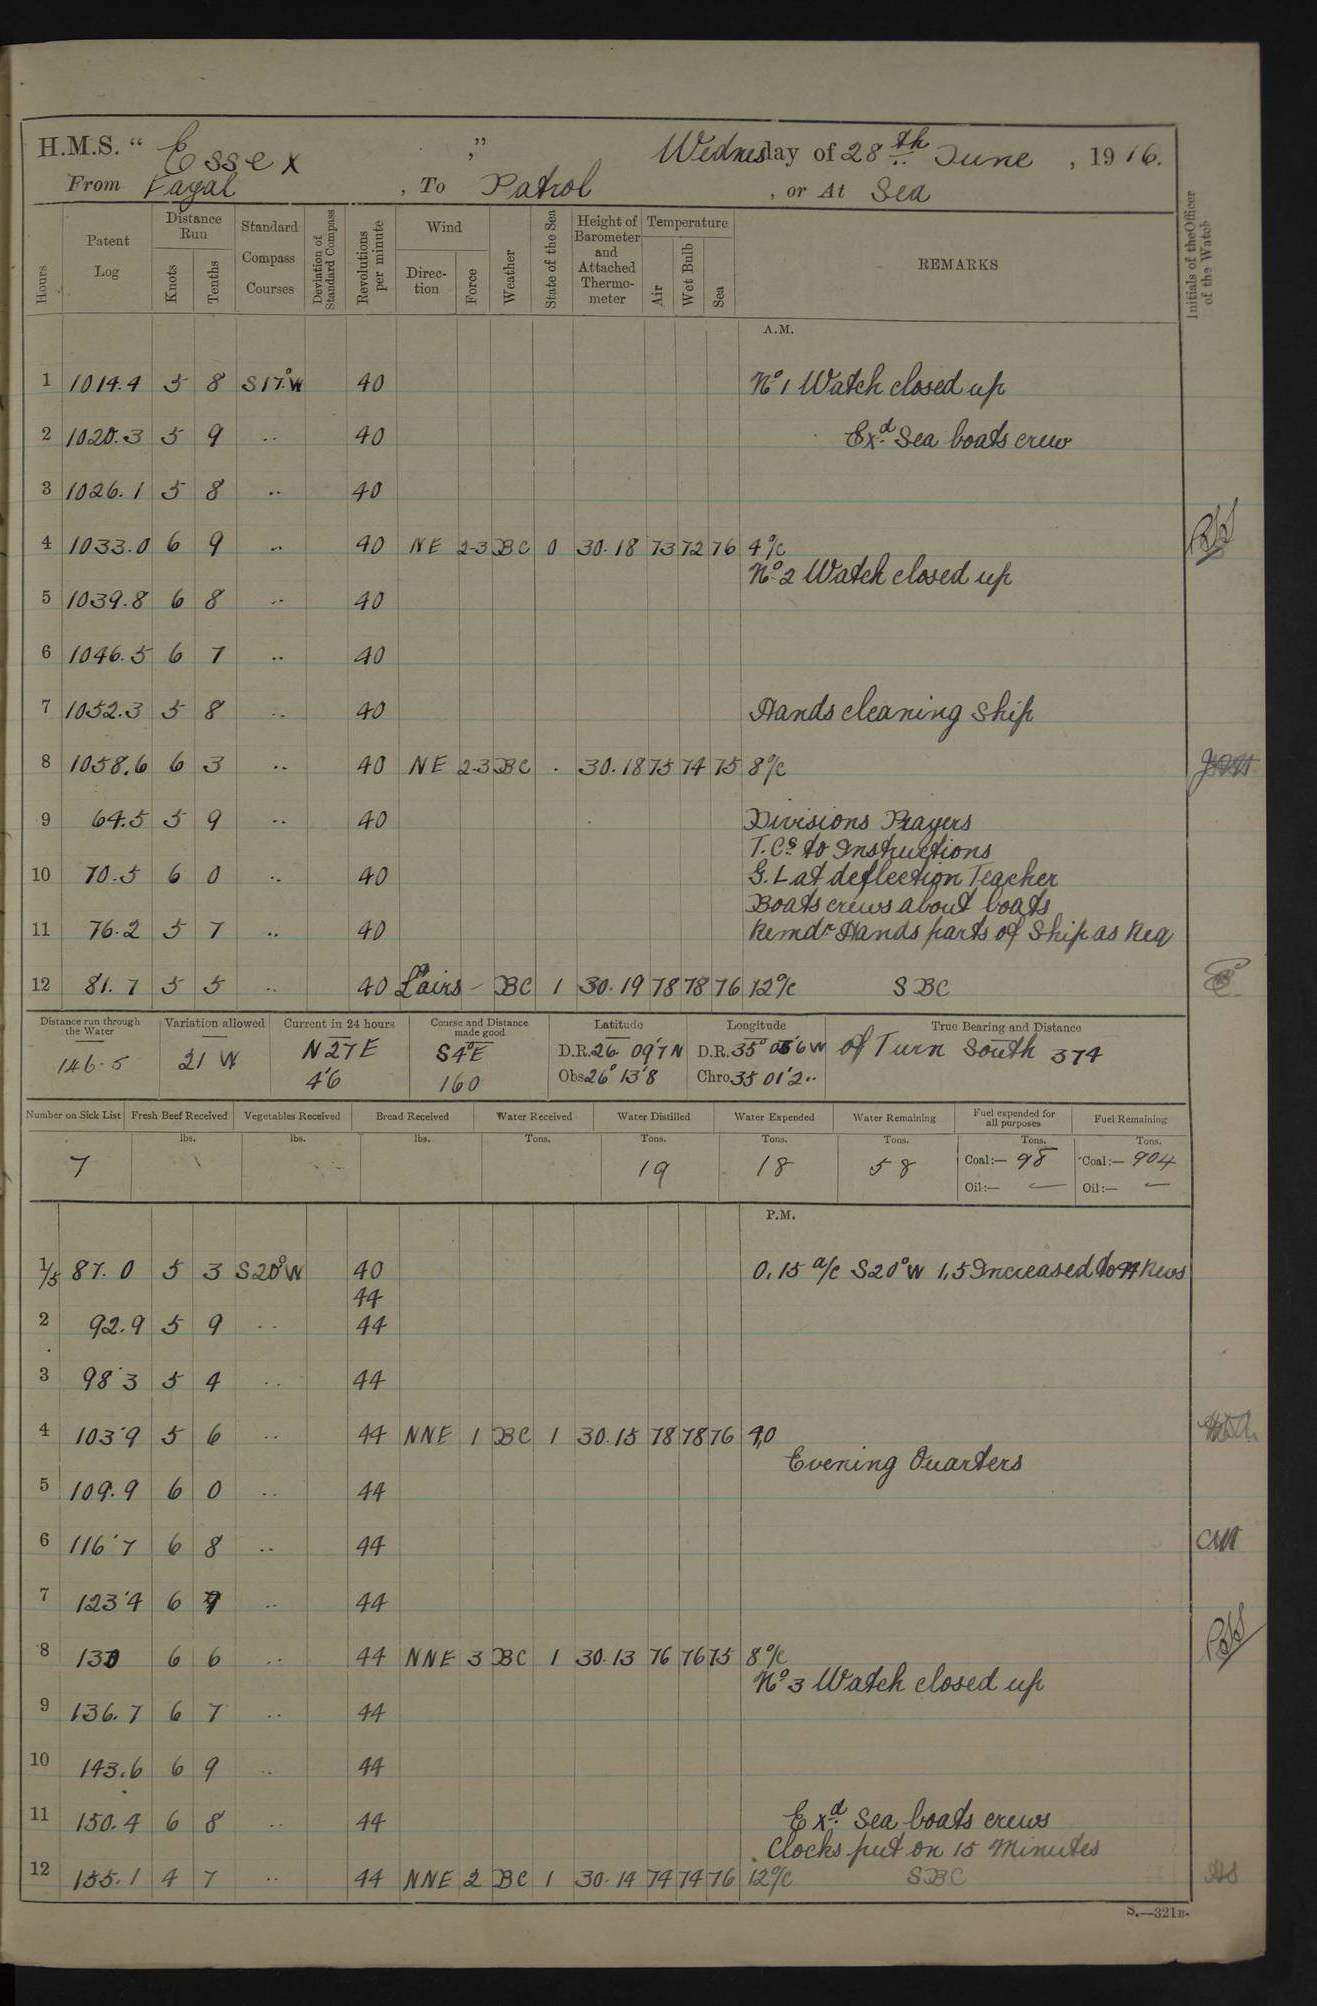 H.M.S. “ Essex ,” Wednesday of 28th June , 1916.
From Fayal , To Patrol , or At Sea
Hours
Patent Log
Distance Run
Knots
Tenths
Standard Compass Courses
Deviation of Standard Compass
Revolutions per minute
Wind
Direction
Force
Weather
State of the Sea
Height of Barometer and Attached Thermometer
Temperature
Air
Wet Bulb
Sea
REMARKS
Initials of the Officer of the Watch
A.M.
1 1014.4 5 8 S17°W 40 No 1 Watch closed up
2 1020.3 5 9 .. 40 Exd Sea boats crew
3 1026.1 5 8 .. 40
4 1033.0 6 9 .. 40 NE 2-3 BC 0 30.18 73 72 76 4 o/c
No 2 Watch closed up
5 1039.8 6 8 .. 40
6 1046.5 6 7 .. 40
7 1052.3 5 8 .. 40 Hands cleaning Ship
8 1058.6 6 3 .. 40 NE 2-3 BC . 30.18 75 74 75 8 o/c
9 64.5 5 9 .. 40 Divisions Prayers
T.Cs to Instructions
10 70.5 6 0 .. 40 G.L at deflection Teacher
Boats crews about boats
11 76.2 5 7 .. 40 Remdr Hands parts of Ship as Req
12 81.7 5 5 .. 40 Lt airs - BC 1 30.19 78 78 76 12 o/c SBC
Distance run through the Water
Variation allowed
Current in 24 hours
Course and Distance made good
Latitude
Longitude
True Bearing and Distance
146.5 21 W N 27 E 4'6 S4°E 160
D.R. 26 09'7 N D.R. 35° 05'6 W of Turn South 374
Obs 26° 13'8 Chro 35 01'2 ..
Number on Sick List
Fresh Beef Received
Vegetables Received
Bread Received
Water Received
Water Distilled
Water Expended
Water Remaining
Fuel expended for all purposes
Fuel Remaining
lbs. lbs. lbs. Tons. Tons. Tons. Tons. Tons. Tons.
7 19 18 58 Coal:— 98 Coal:— 904
Oil:— — Oil:— —
P.M.
1/5 87.0 5 3 S20°W 40 0.15 a/c S20°W 1.5 Increased to 44 Revs
44
2 92.9 5 9 .. 44
3 98'3 5 4 .. 44
4 103'9 5 6 .. 44 NNE 1 BC 1 30.15 78 78 76 4.0
Evening Quarters
5 109.9 6 0 .. 44
6 116'7 6 8 .. 44 CNN
7 123'4 6 7 .. 44
8 130 6 6 .. 44 NNE 3 BC 1 30.13 76 76 75 8 o/c
No 3 Watch closed up
9 136.7 6 7 .. 44
10 143.6 6 9 .. 44
11 150.4 6 8 .. 44 Exd Sea boats crews
Clocks put on 15 Minutes
12 155.1 4 7 .. 44 NNE 2 BC 1 30.14 74 74 76 12 o/c SBC
S.—321B.